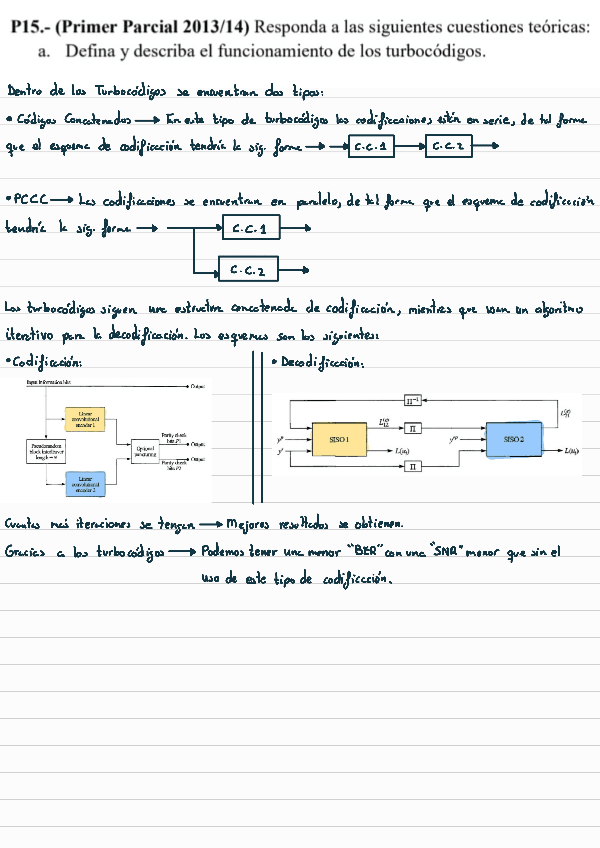 P15.- (Primer Parcial 2013/14) Responda a las siguientes cuestiones teóricas:
a. Defina y describa el funcionamiento de los turbocódigos.
Dentro de los Turbocódigos se encuentran dos tipos:
• Códigos Concatenados → En este tipo de turbocódigos las codificaciones están en serie, de tal forma
que el esquema de codificación tendría la sig. forma → C.C.1 C.C.2
• PCCC → Las codificaciones se encuentran en paralelo, de tal forma que el esquema de codificación
tendría la sig. forma → C.C.1
C.C.2
Los turbocódigos siguen una estructura concatenada de codificación, mientras que usan un algoritmo
iterativo para la decodificación. Los esquemas son los siguientes:
• Codificación:
Input information bits
Output
Linear
convolutional
encoder 1
Parity check
bits P1
Output
Pseudorandom
block interleaver
length = n
Optional
puncturing
Output
Parity check
bits P2
Linear
convolutional
encoder 2
• Decodificación:
Π⁻¹
Π
SISO 1
SISO 2
L(uᵢ)
L(uᵢ)
Π
Cuantas más iteraciones se tengan → Mejores resultados se obtienen.
Gracias a los turbocódigos → Podemos tener una menor "BER" con una "SNR" menor que sin el
uso de este tipo de codificación.